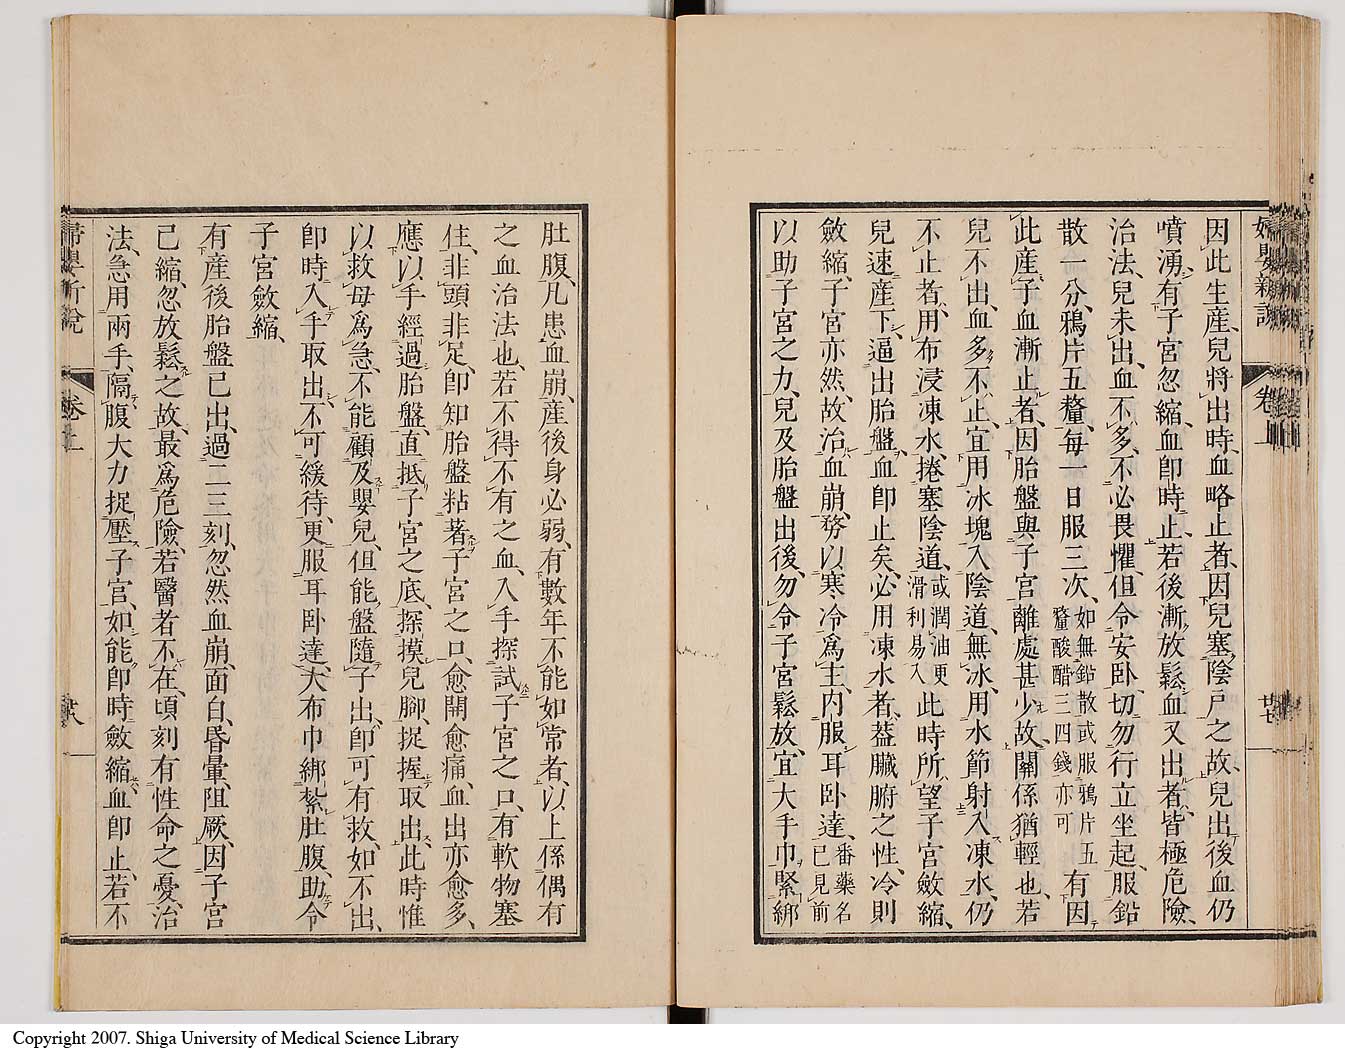 婦嬰新説 卷上 廿七
因此生産、兒將出時、血略止者、因兒塞陰戸之故、兒出後血仍
噴湧、有子宮忽縮、血即時止、若後漸放鬆、血又出者、皆極危險、
治法、兒未出、血不多、不必畏懼、但令安卧、切勿行立坐起、服鉛
散一分、鴉片五釐、毎一日服三次、如無鉛散或服鴉片五釐酸醋三四錢亦可有因
此産、子血漸止者、因胎盤與子宮離處甚少、故關係猶輕也、若
兒不出、血多不止、宜用冰塊入陰道、無冰、用水節射入凍水、仍
不止者、用布浸凍水、捲塞陰道、或潤油更滑利易入此時所望子宮斂縮、
兒速産下、逼出胎盤、血即止矣、必用凍水者、蓋臟腑之性、冷則
斂縮、子宮亦然、故治血崩、務以寒冷爲主、内服耳卧達、番藥名已見前
以助子宮之力、兒及胎盤出後、勿令子宮鬆放、宜大手巾緊綁
肚腹、凡患血崩、産後身必弱、有數年不能如常者、以上係偶有
之血治法也、若不得不有之血、入手探試子宮之口、有軟物塞
住、非頭非足、即知胎盤粘著子宮之口、愈開愈痛、血出亦愈多、
應以手經過胎盤、直抵子宮之底、探摸兒腳、捉握取出、此時惟
以救母爲急、不能顧及嬰兒、但能盤隨子出、即可有救、如不出、
即時入手取出、不可緩待、更服耳卧達、大布巾綁紮肚腹、助令
子宮斂縮、
有産後胎盤已出、過二三刻、忽然血崩、面白、昏暈、阻厥、因子宮
己縮、忽放鬆之故、最爲危險、若醫者不在、頃刻有性命之憂、治
法、急用兩手、隔腹大力捉壓子宮、如能即時斂縮、血即止、若不
婦嬰新説 卷上 廿八
Copyright 2007. Shiga University of Medical Science Library